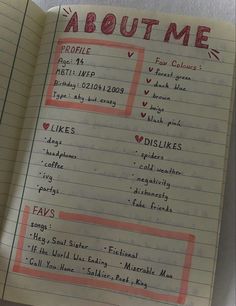 ABOUT ME
PROFILE
Age: 14
MBTI: INFP
Birthday: 02104 2009
Type: shy but crazy
Fav Colours:
forest green
dark blue
brown
beige
black pink
LIKES
dogs
headphones
coffee
ivy
partys
DISLIKES
spiders
cold weather
negativity
dishonesty
fake friends
FAVS
songs:
• Hey, Soul Sister • Fictional
• If the World Was Ending • Miserable Man
• Call You Home • Soldier, Poet, King